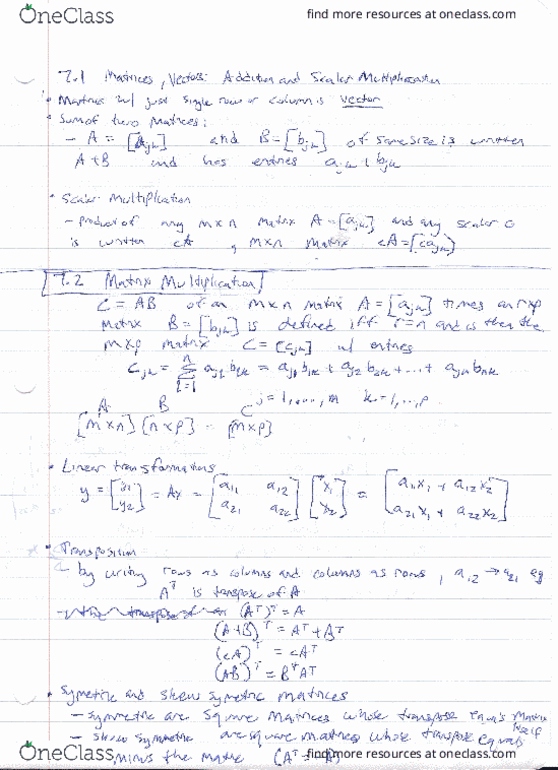 OneClass
find more resources at oneclass.com
7.1 Matrices, Vectors: Addition and Scalar Multiplication
• Matrix w/ just single row or column is vector
• Sum of two Matrices:
- A = [ajk] and B = [bjk] of same size is written
A+B and has entries ajk + bjk
• Scalar Multiplication
- product of any m×n matrix A = [ajk] and any scalar c
is written cA, m×n matrix cA = [cajk]
7.2 Matrix Multiplication
C = AB of an m×n matrix A = [ajk] times an r×p
matrix B = [bjk] is defined iff r=n and is then the
m×p matrix C = [cjk] w/ entries
cjk = Σ (l=1 to n) ajl blk = aj1 b1k + aj2 b2k + ... + ajn bnk
j = 1,...,m k = 1,...,p
A B C
[m×n] [n×p] = [m×p]
• Linear transformations
y = [y1 y2] = Ax = [a11 a12 a21 a22] [x1 x2] = [a11x1 + a12x2 a21x1 + a22x2]
• Transposition
- by writing rows as columns and columns as rows, a12 → a21 eg
Aᵀ is transpose of A
(Aᵀ)ᵀ = A
(A+B)ᵀ = Aᵀ + Bᵀ
(cA)ᵀ = cAᵀ
(AB)ᵀ = BᵀAᵀ
• Symetric and skew symetric matrices
- symmetric are square matrices whose transpose equals matrix itself
- skew symmetric are square matrices whose transpose equals
minus the matrix (Aᵀ = -A)
OneClass
find more resources at oneclass.com